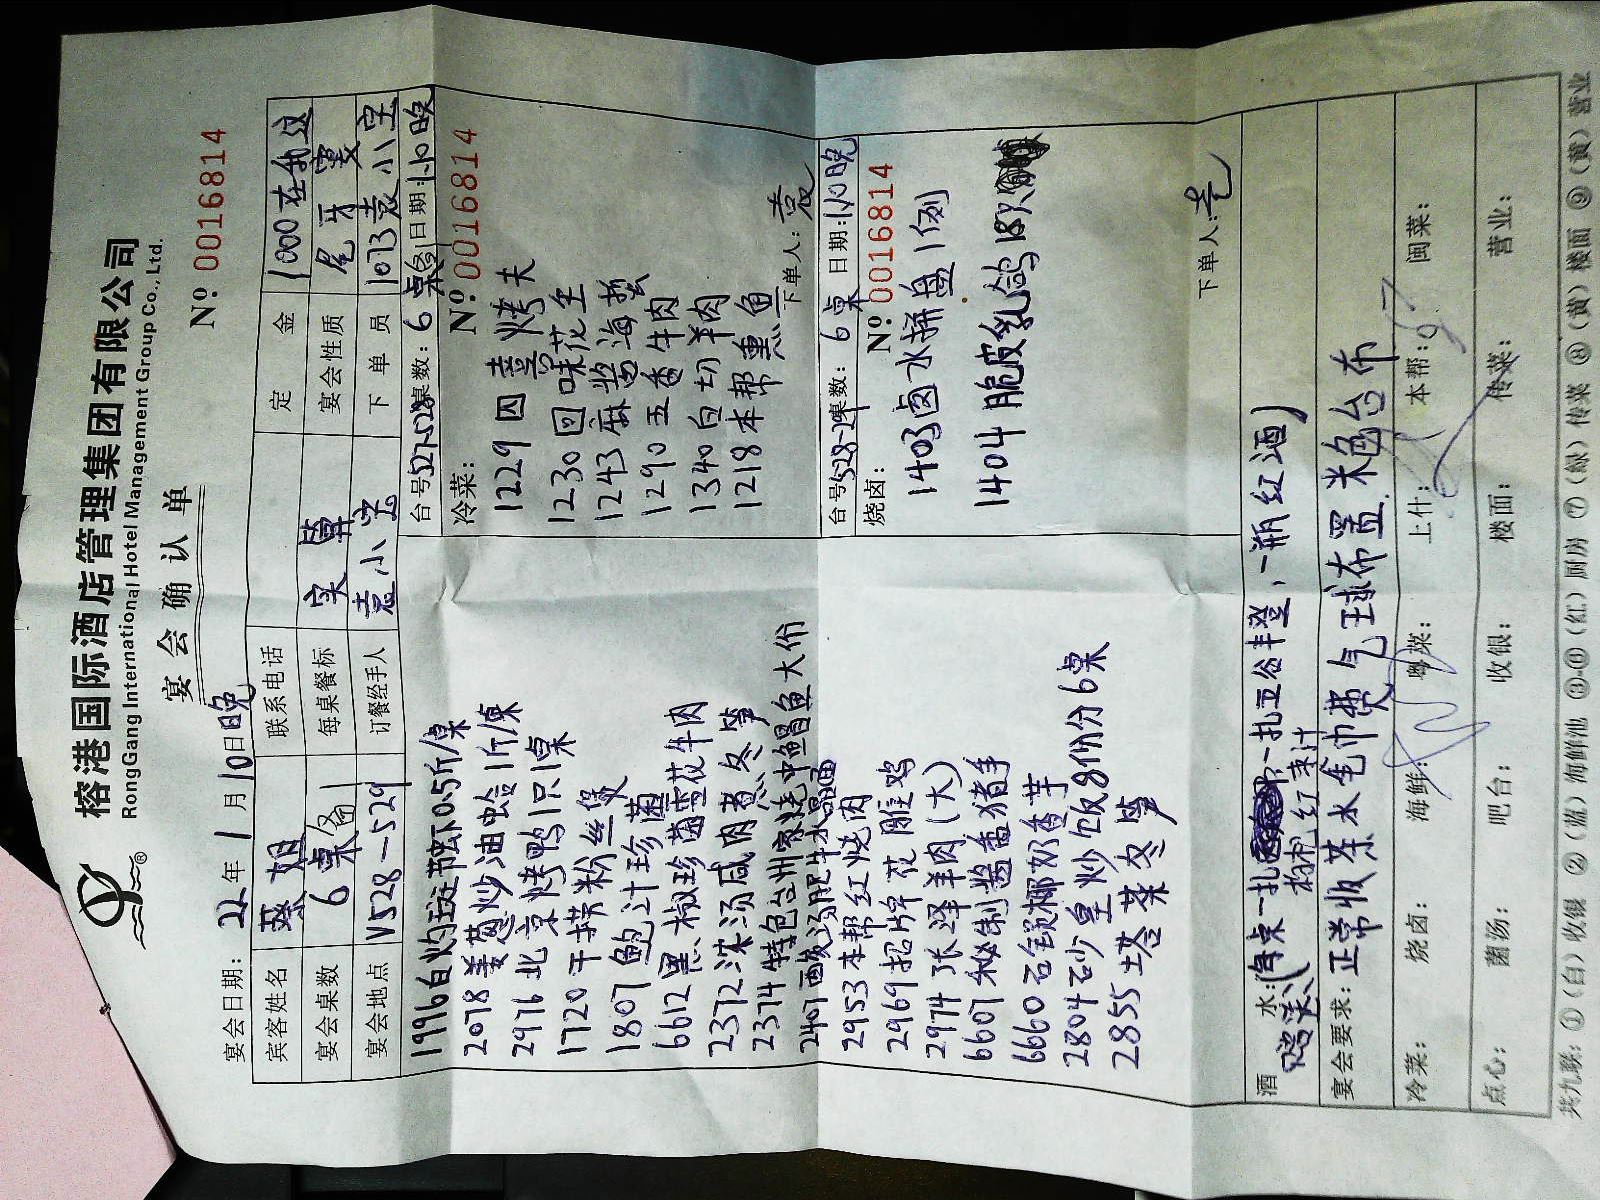 榕港国际酒店管理集团有限公司
RongGang International Hotel Management Group Co., Ltd.
宴会确认单
宴会日期: 22年1月10日晚
№ 0016814
宾客姓名 蔡姐 联系电话 定金 1000在我这
宴会桌数 6桌备1 每桌餐标 实算 宴会性质 尾牙宴
宴会地点 V528-529 订餐经手人 袁小宝 下单员 1073袁小宝
台号527-528桌数: 6桌备1日期:1.10晚
冷菜: № 0016814
1229 四喜烤夫
1230 回味花生
1243 麻酱海蜇
1290 五香牛肉
1340 白切羊肉
1218 本帮熏鱼
下单人: 袁
台号528-29桌数: 6桌 日期:1/10晚
烧卤: № 0016814
1403 卤水拼盘1例
1404 脆皮乳鸽18只
下单人:
1996 白灼基节虾0.5斤/桌
2078 姜葱炒油蛤1斤/桌
2976 北京烤鸭1只1桌
1720 干捞粉丝煲
1807 鲍汁珍菌
6612 黑椒珍菌雪花牛肉
2372 浓汤咸肉煮冬笋
2374 特色台州家烧中鲳鱼大份
2407 酸汤肥牛水晶面
2953 本帮红烧肉
2969 招牌花雕鸡
2974 张泽羊肉(大)
6607 秘制酱香猪手
6660 石锅椰奶香芋
2804 砂皇炒饭8份分6桌
2855 塔菜冬笋
酒水: (每桌一扎 一扎豆谷丰登,一瓶红酒)
枸杞红枣汁
宴会要求: 正常收茶水毛巾费 气球布置 米色台布
冷菜: 烧卤: 海鲜: 粤菜: 上什: 本帮: 闽菜:
点心: 菌汤: 吧台: 收银: 楼面: 传菜: 营业:
共九联: ①(白)收银 ②(蓝)海鲜池 ③-⑥(红)厨房 ⑦(绿)传菜 ⑧(黄)楼面 ⑨(黄)营业